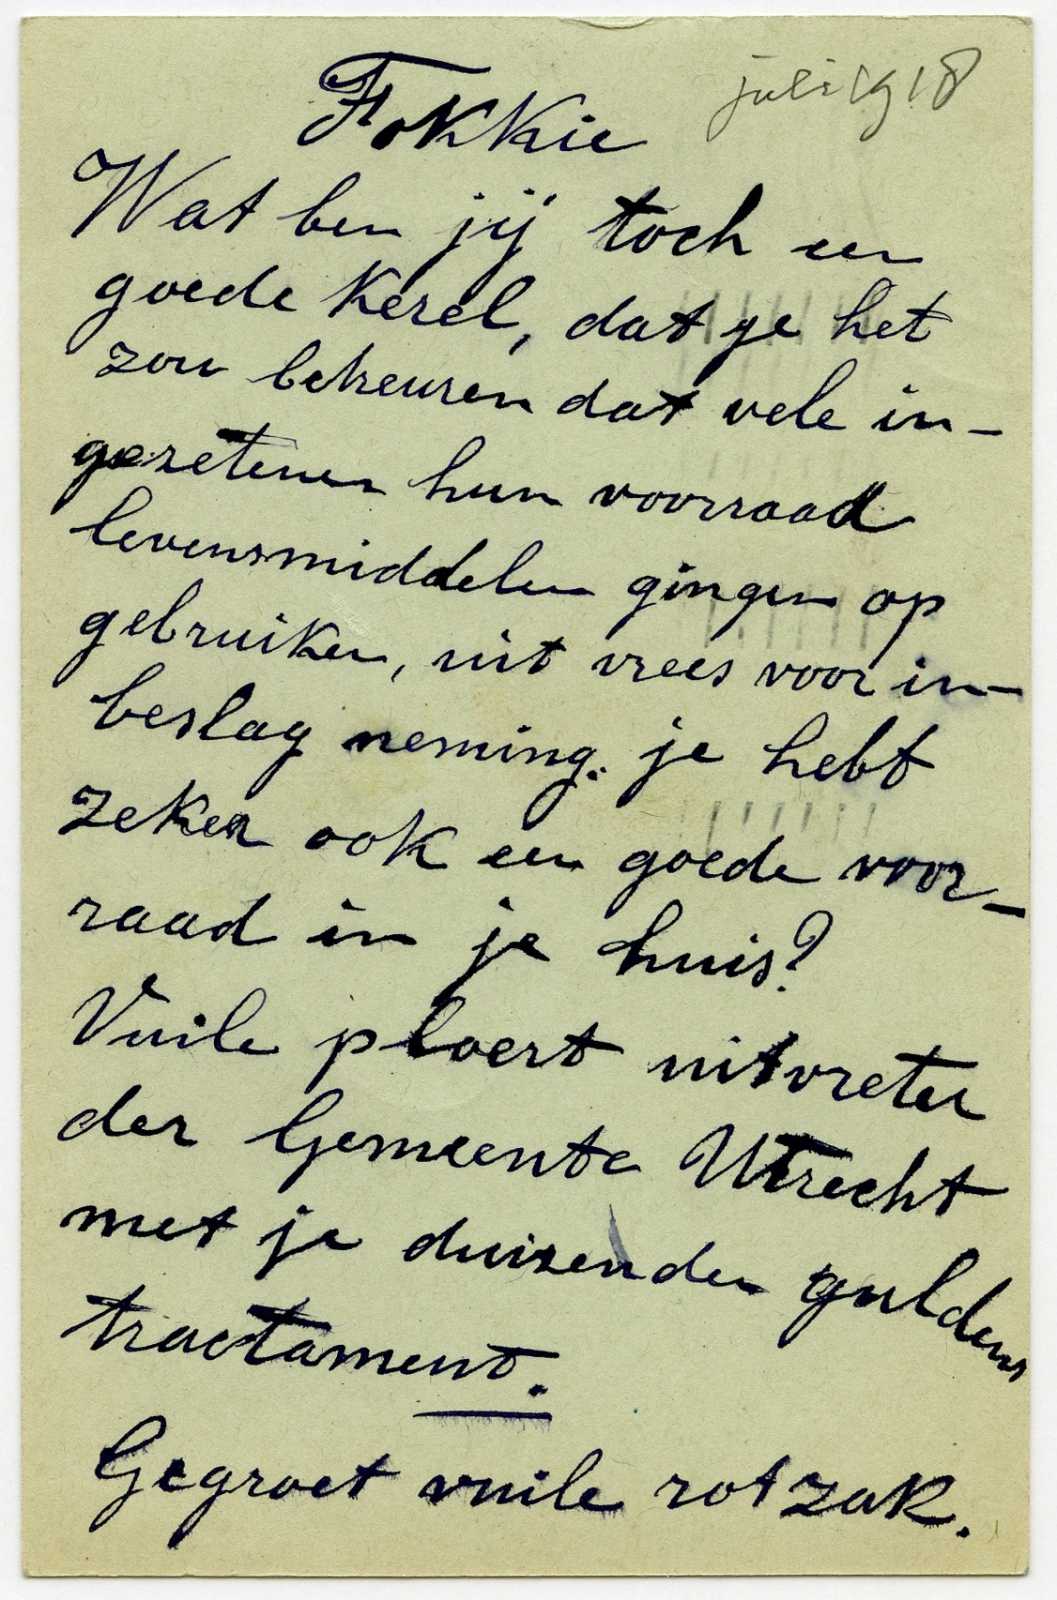 juli 1918
Fokkie
Wat ben jij toch een
goede Kerel, dat je het
zou betreuren dat vele in-
gezetenen hun voorraad
levensmiddelen gingen op
gebruiken, uit vrees voor in-
beslag neming. je hebt
zeker ook een goede voor-
raad in je huis?
Vuile ploert uitvreter
der Gemeente Utrecht
met je duizenden guldens
tractament.
Gegroet vuile rotzak.